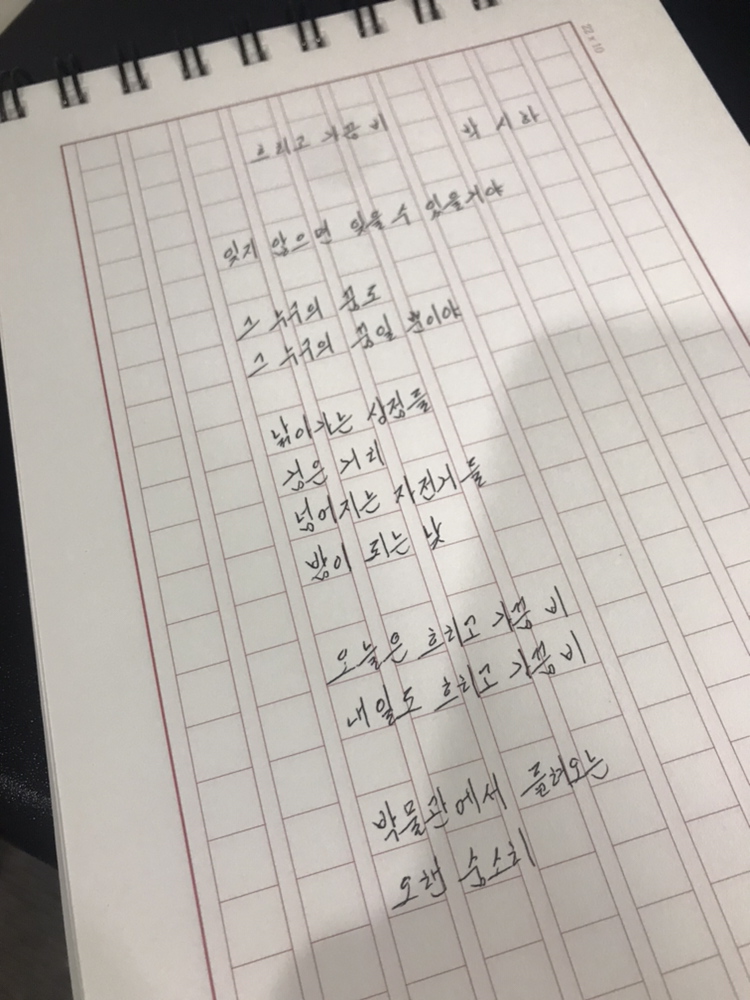 흐리고 가끔 비 박시하
잊지 않으면 잊을 수 있을거야
그 누구의 꿈도
그 누구의 꿈일 뿐이야
낡아가는 상점들
검은 거리
넘어지는 자전거들
밤이 되는 낮
오늘은 흐리고 가끔 비
내일도 흐리고 가끔 비
박물관에서 들려오는
오랜 숨소리
22 x 10